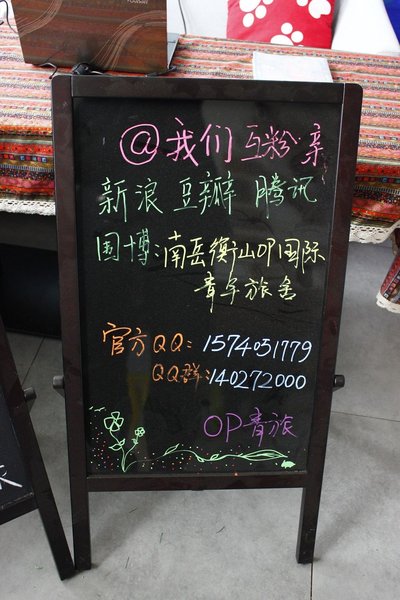 @我们 互粉 亲
新浪 豆瓣 腾讯
围博:南岳衡山OP国际
青年旅舍
官方QQ: 1574051779
QQ群:140272000
OP青旅